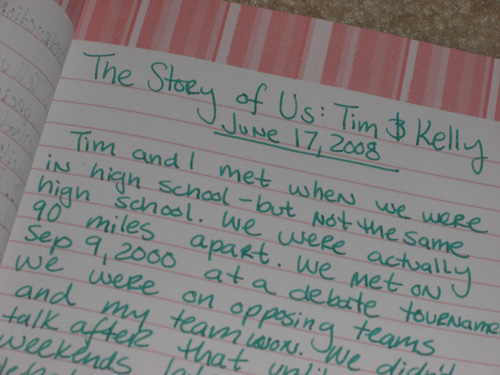 The Story of Us: Tim & Kelly
June 17, 2008
Tim and I met when we were
in high school - but not the same
high school. We were actually
90 miles apart. We met on
Sep 9, 2000 at a debate tourname
we were on opposing teams
and my team won. We didn't
talk after that until
weekends